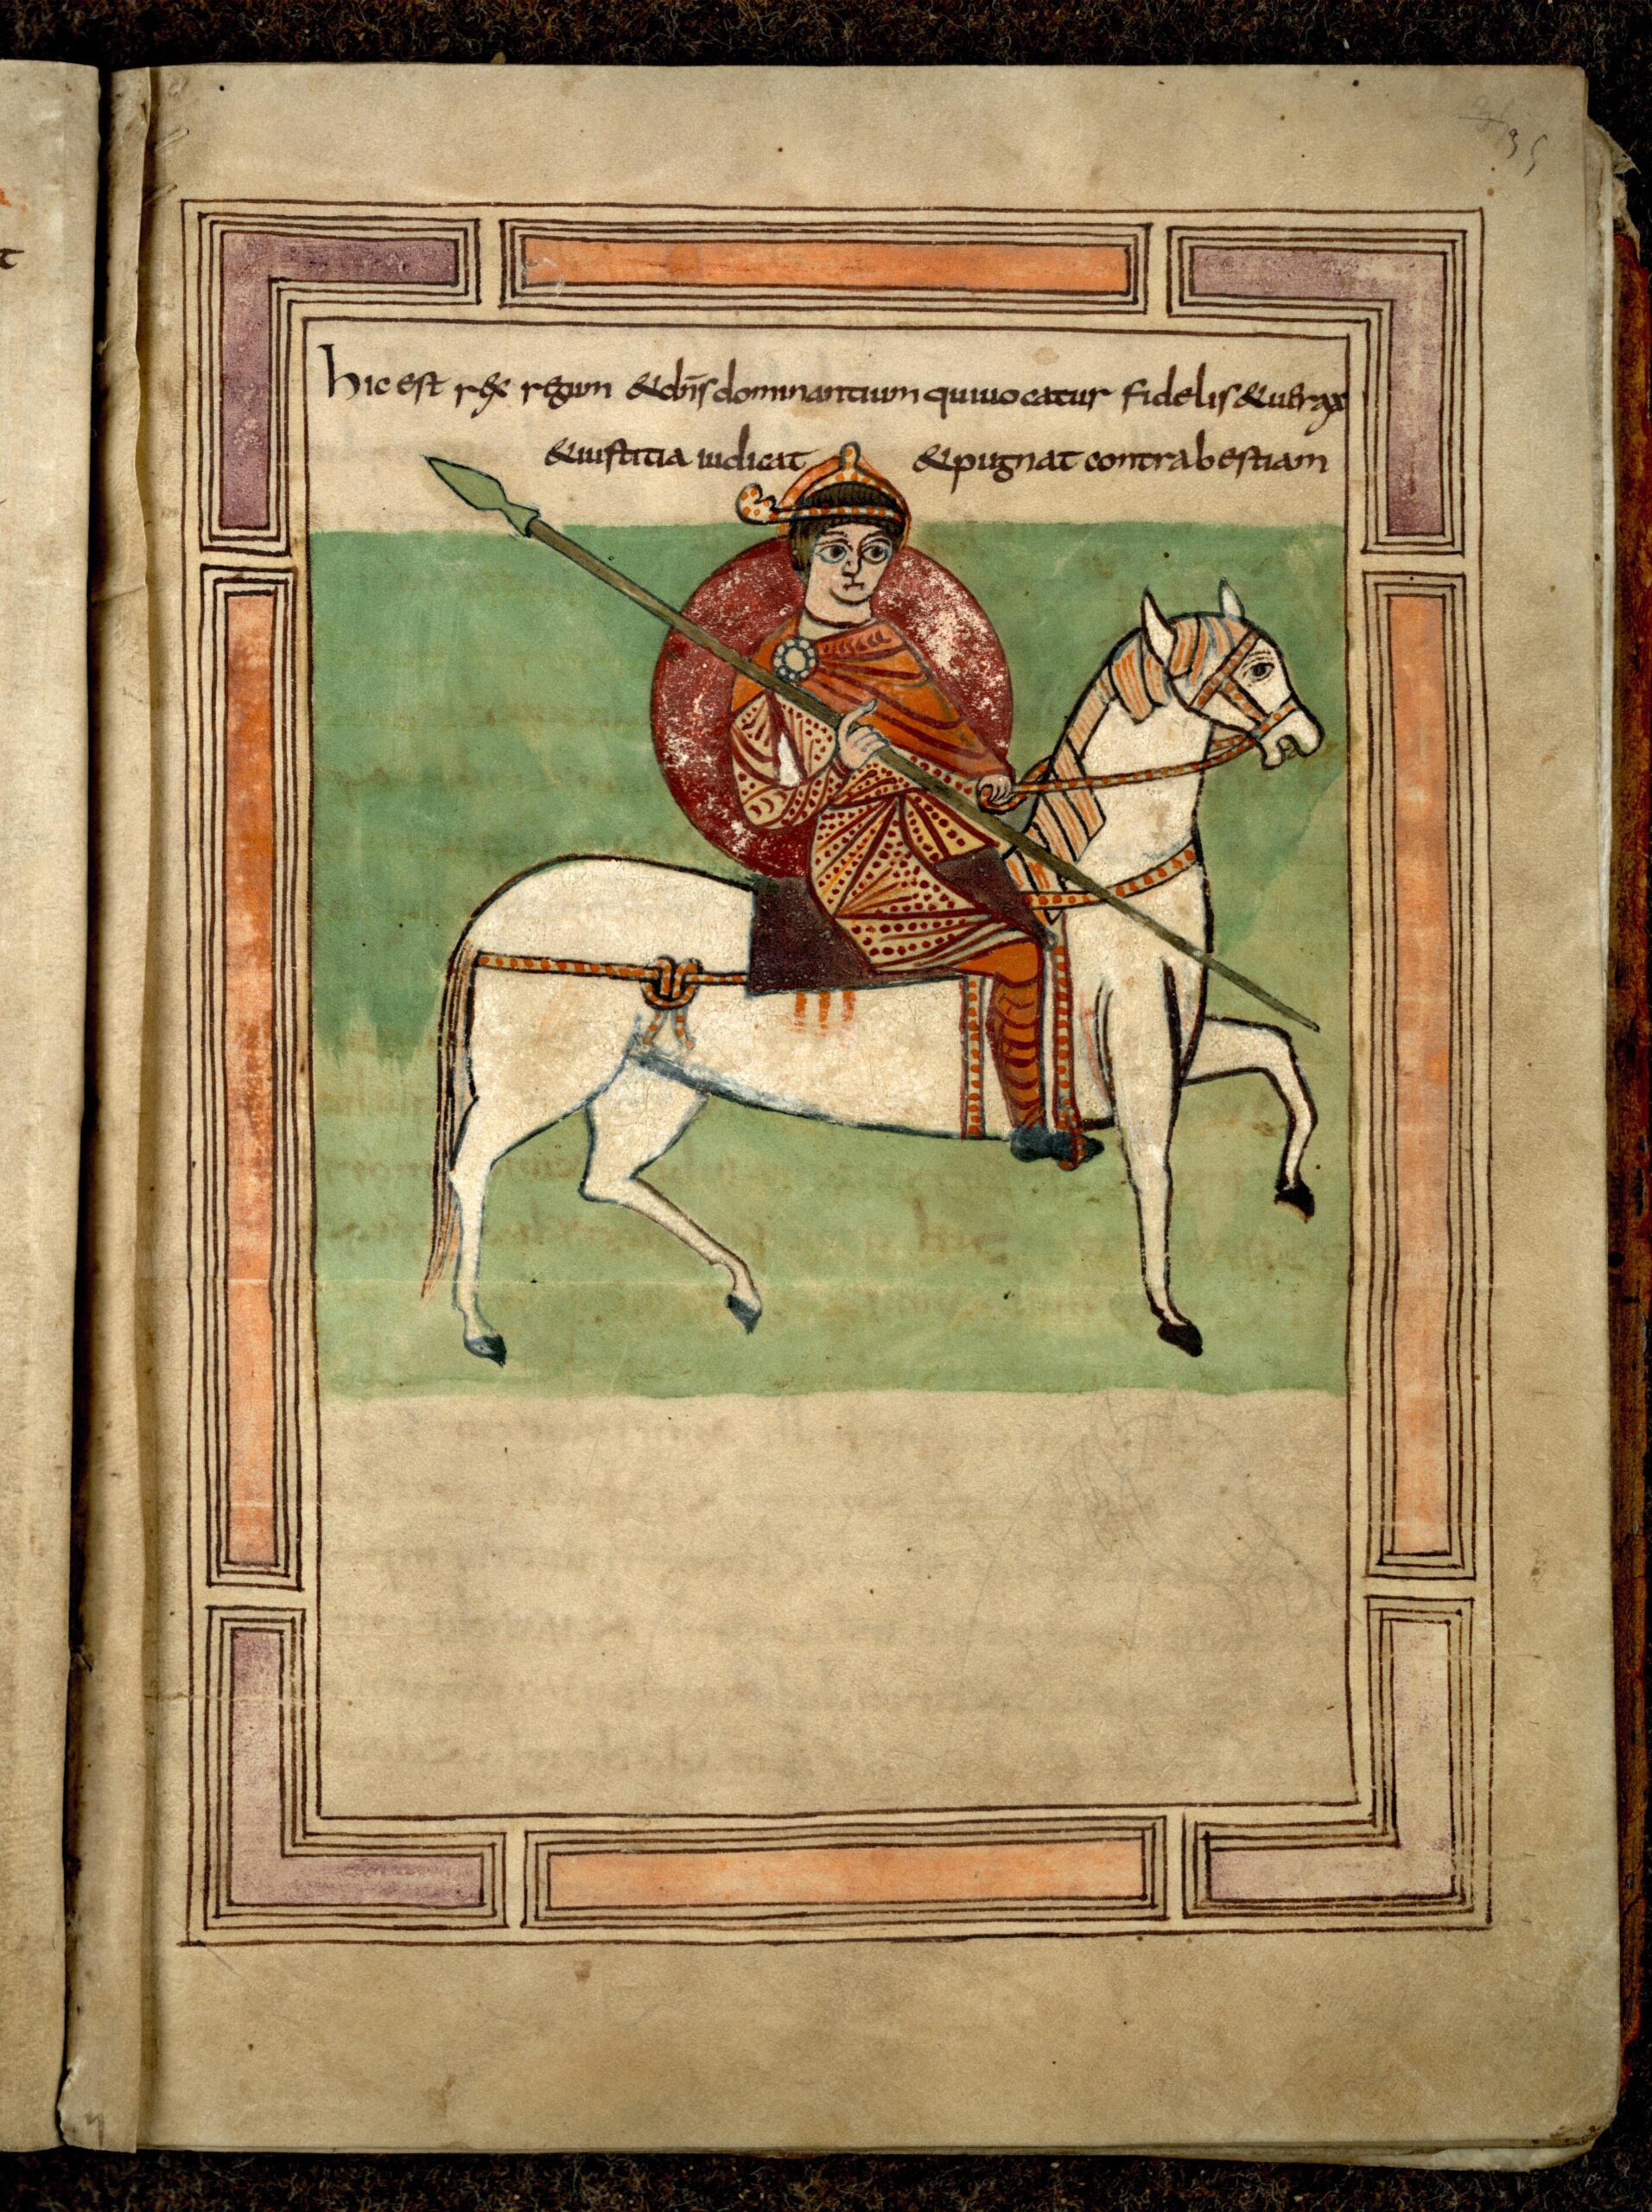 35
hic est rex regum &dn̄s dominantium qui uocatur fidelis &uerax
&iustitia iudicat &pugnat contra bestiam